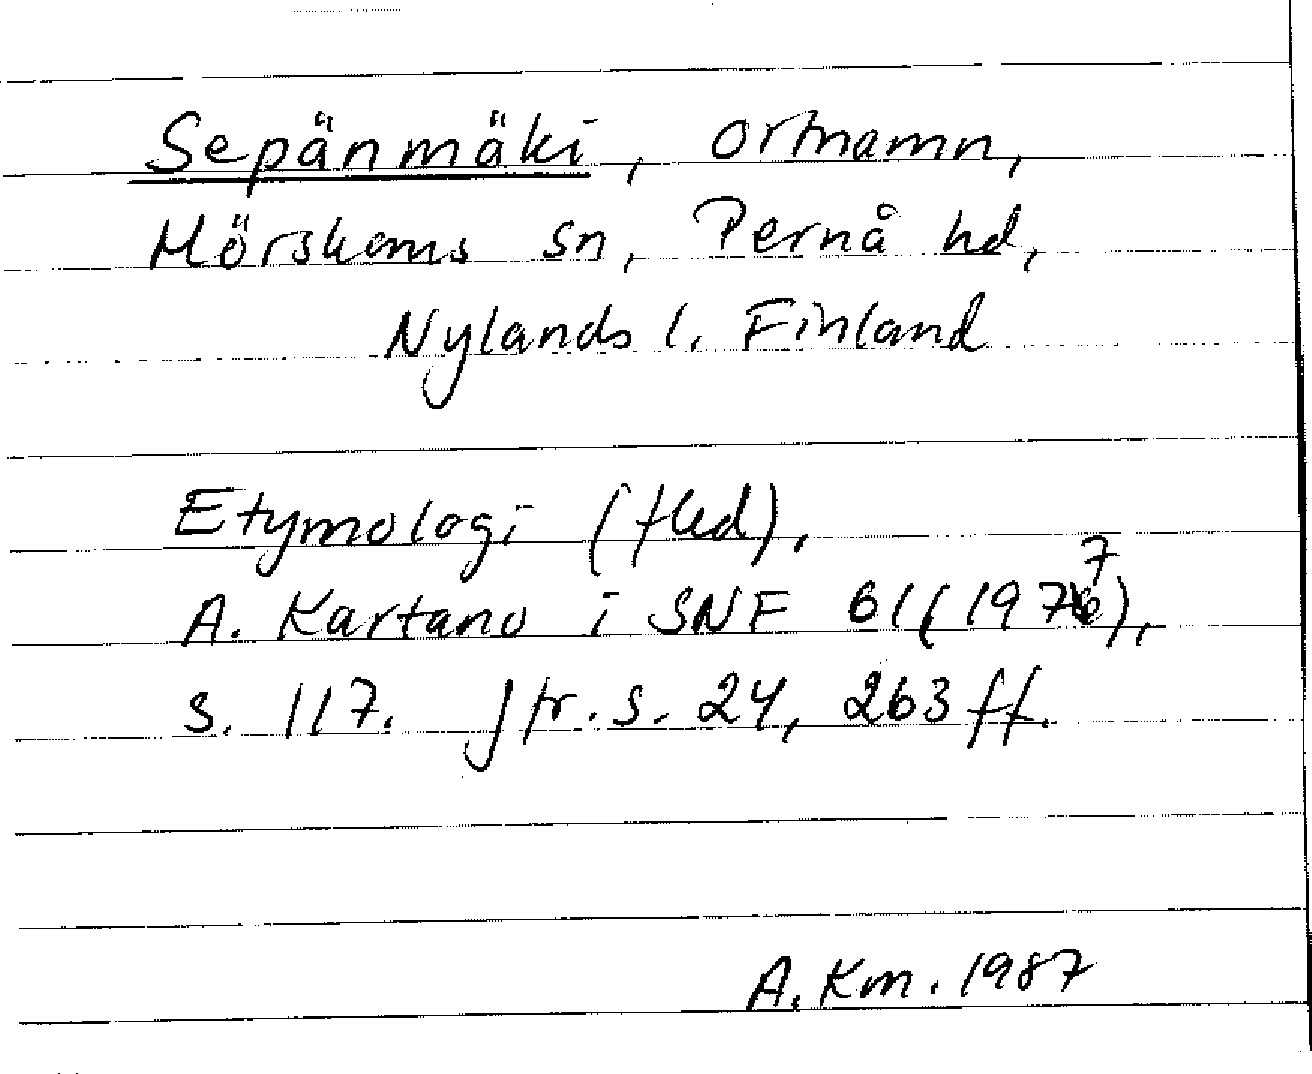 Sepänmäki, ortnamn,
Mörskoms sn, Pernå hd,
Nylands l. Finland
Etymologi (fled),
A. Kartano i SNF 61 (1977),
s. 117. Jfr. s. 24, 263 ff.
A. Km. 1987